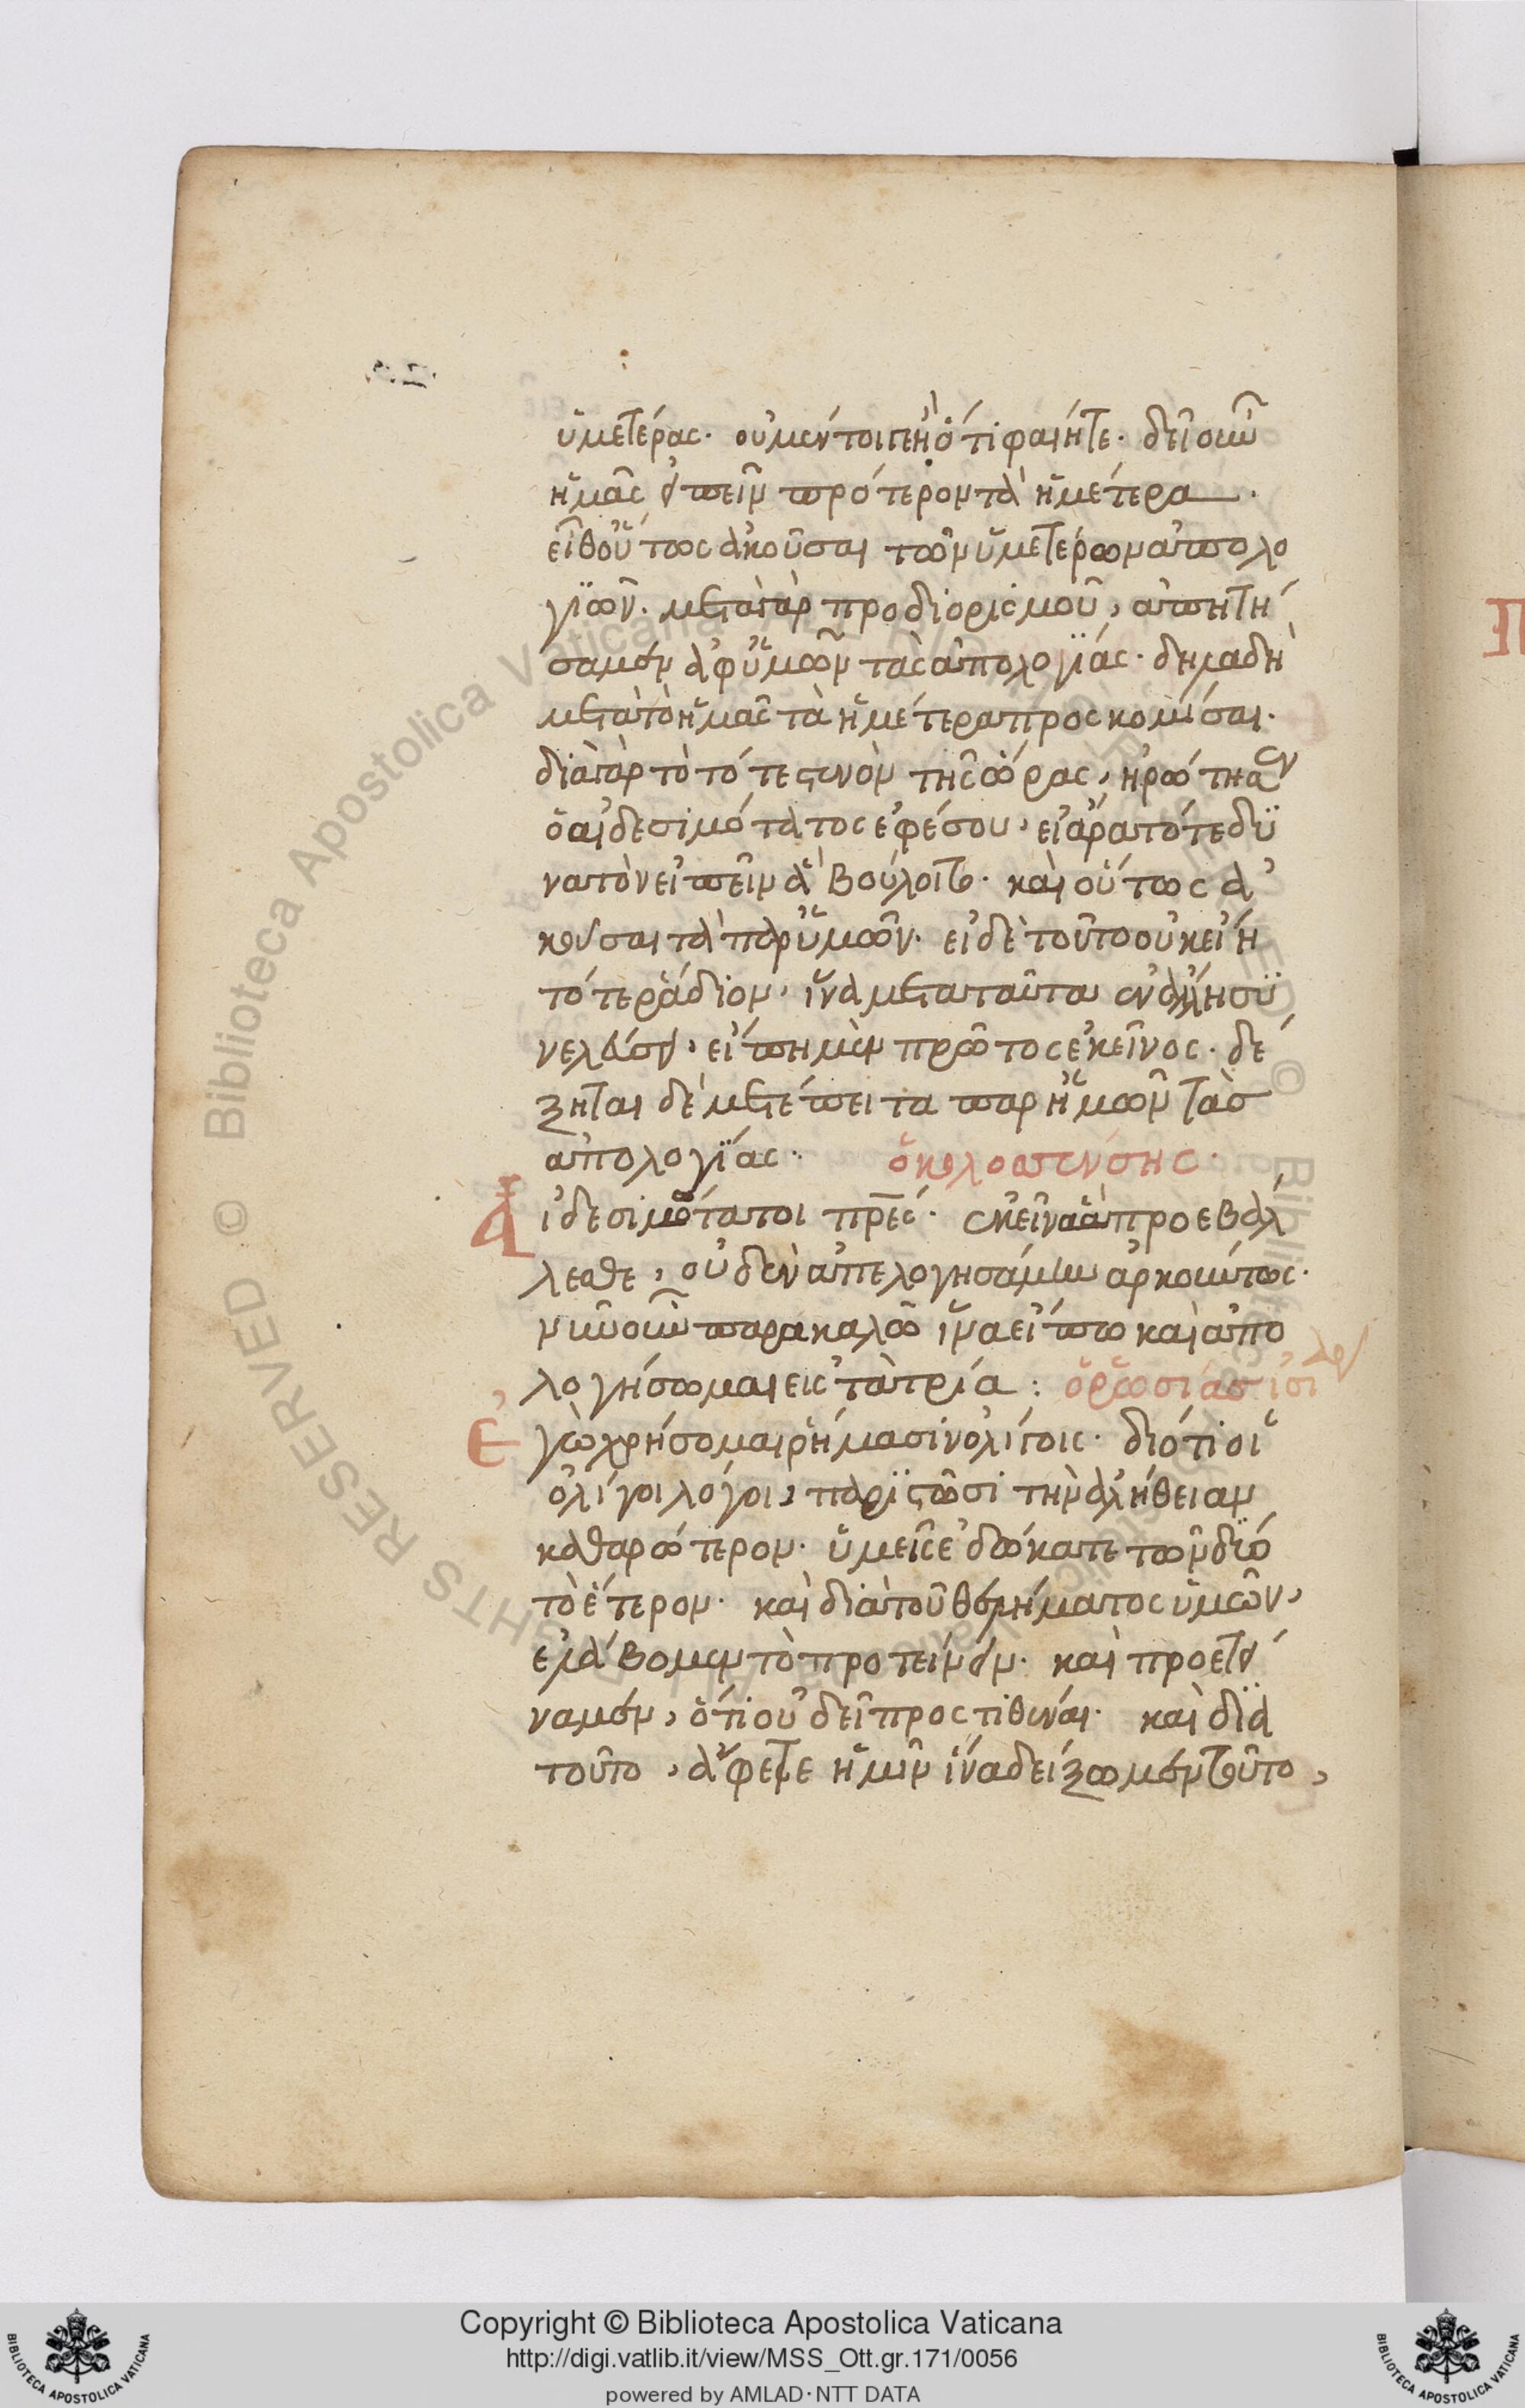 ὑμετέρας· οὐ μέντοι γε ἢ ὅτι φαίητε· δεῖ οὖν
ἡμᾶς εἰπεῖν πρότερον τὰ ἡμέτερα.
εἶθ' οὕτως ἀκοῦσαι τῶν ὑμετέρων ἀπολο
γιῶν· μετὰ γὰρ προδιορισμοῦ, ἀπῃτή
σαμεν ἀφ' ὑμῶν τὰς ἀπολογίας· δηλαδὴ
μετὰ τὸ ἡμᾶς τὰ ἡμέτερα προσκομίσαι.
διὰ γὰρ τὸ τότε στενὸν τῆς ὥρας, ἠρώτησεν
ὁ αἰδεσιμώτατος ἐφέσου, εἰ ἄρα τότε δυ
νατὸν εἰπεῖν ἃ βούλοιτο· καὶ οὕτως ἀ
κοῦσαι τὰ παρ' ὑμῶν· εἰ δὲ τοῦτο οὐκ εἴη
τότε ῥάδιον, ἵνα μετὰ ταῦτα ἐν ἄλλῃ συ
νελεύσει, εἴπῃ μὲν πρῶτος ἐκεῖνος· δέ
ξηται δὲ μετέπειτα παρ' ἡμῶν τὰς
ἀπολογίας· ὁ κολοσσένσης·
Αἰδεσιμώτατοι πρες· ἐκεῖνα ἃ προεβάλ
λεσθε, οὐδὲν ἀπελογησάμην ἀρκούντως·
νῦν οὖν παρακαλῶ ἵνα εἴπω καὶ ἀπο
λογήσωμαι εἰς τὰ τρία: ὁ ῥωσίας ἰσίδωρ
Ἐγὼ χρήσομαι ῥήμασιν ὀλίγοις· διότι οἱ
ὀλίγοι λόγοι, παριστῶσι τὴν ἀλήθειαν
καθαρώτερον· ὑμεῖς ἐδώκατε τῶν δύο
τὸ ἕτερον· καὶ διὰ τοῦ θελήματος ὑμῶν,
ἐλάβομεν τὸ προτείνειν· καὶ προετεί
ναμεν, ὅτι οὐ δεῖ προστιθέναι· καὶ διὰ
τοῦτο, ἄφετε ἡμῖν ἵνα δείξωμεν τοῦτο,
Copyright © Biblioteca Apostolica Vaticana
http://digi.vatlib.it/view/MSS_Ott.gr.171/0056
powered by AMLAD·NTT DATA